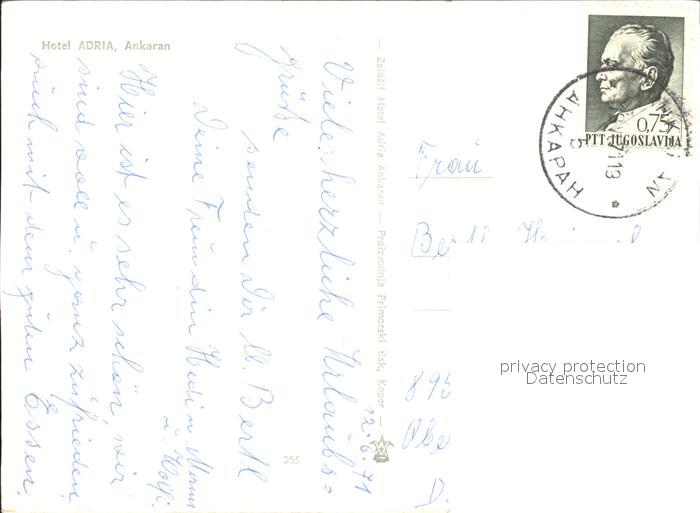 Hotel ADRIA, Ankaran
12.6.71
Viele herzliche Urlaubs=
grüße
senden Dir lb. Bertl
Deine Freundin Hedi u. Mann
u. Wolfi.
Hier ist es sehr schön, wir
sind voll u. ganz zufrieden,
auch mit dem guten Essen.
Založil Hotel Adria Ankaran — Proizvodnja Primorski tisk, Koper
255
Frau
895
0,75
PTT·JUGOSLAVIJA
АНКАРАН
privacy protection
Datenschutz